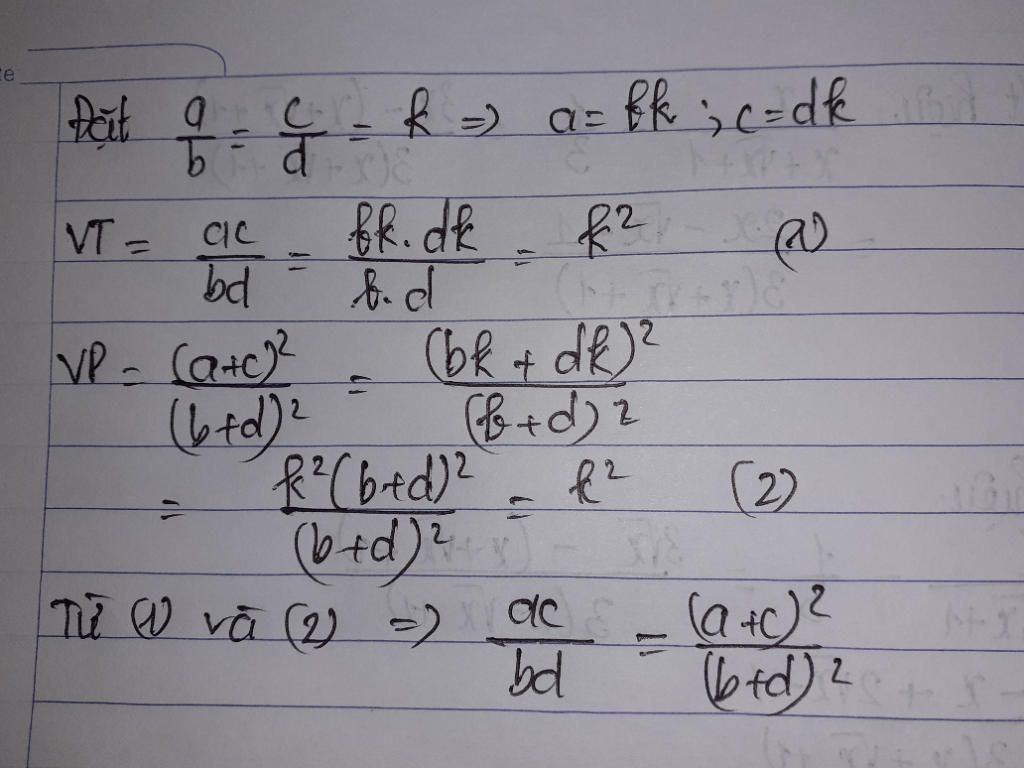 Đặt a/b = c/d = k => a = bk ; c = dk
VT = ac/bd = bk.dk/b.d = k² (1)
VP = (a+c)²/(b+d)² = (bk + dk)²/(b+d)²
= k²(b+d)²/(b+d)² = k² (2)
Từ (1) và (2) => ac/bd = (a+c)²/(b+d)²